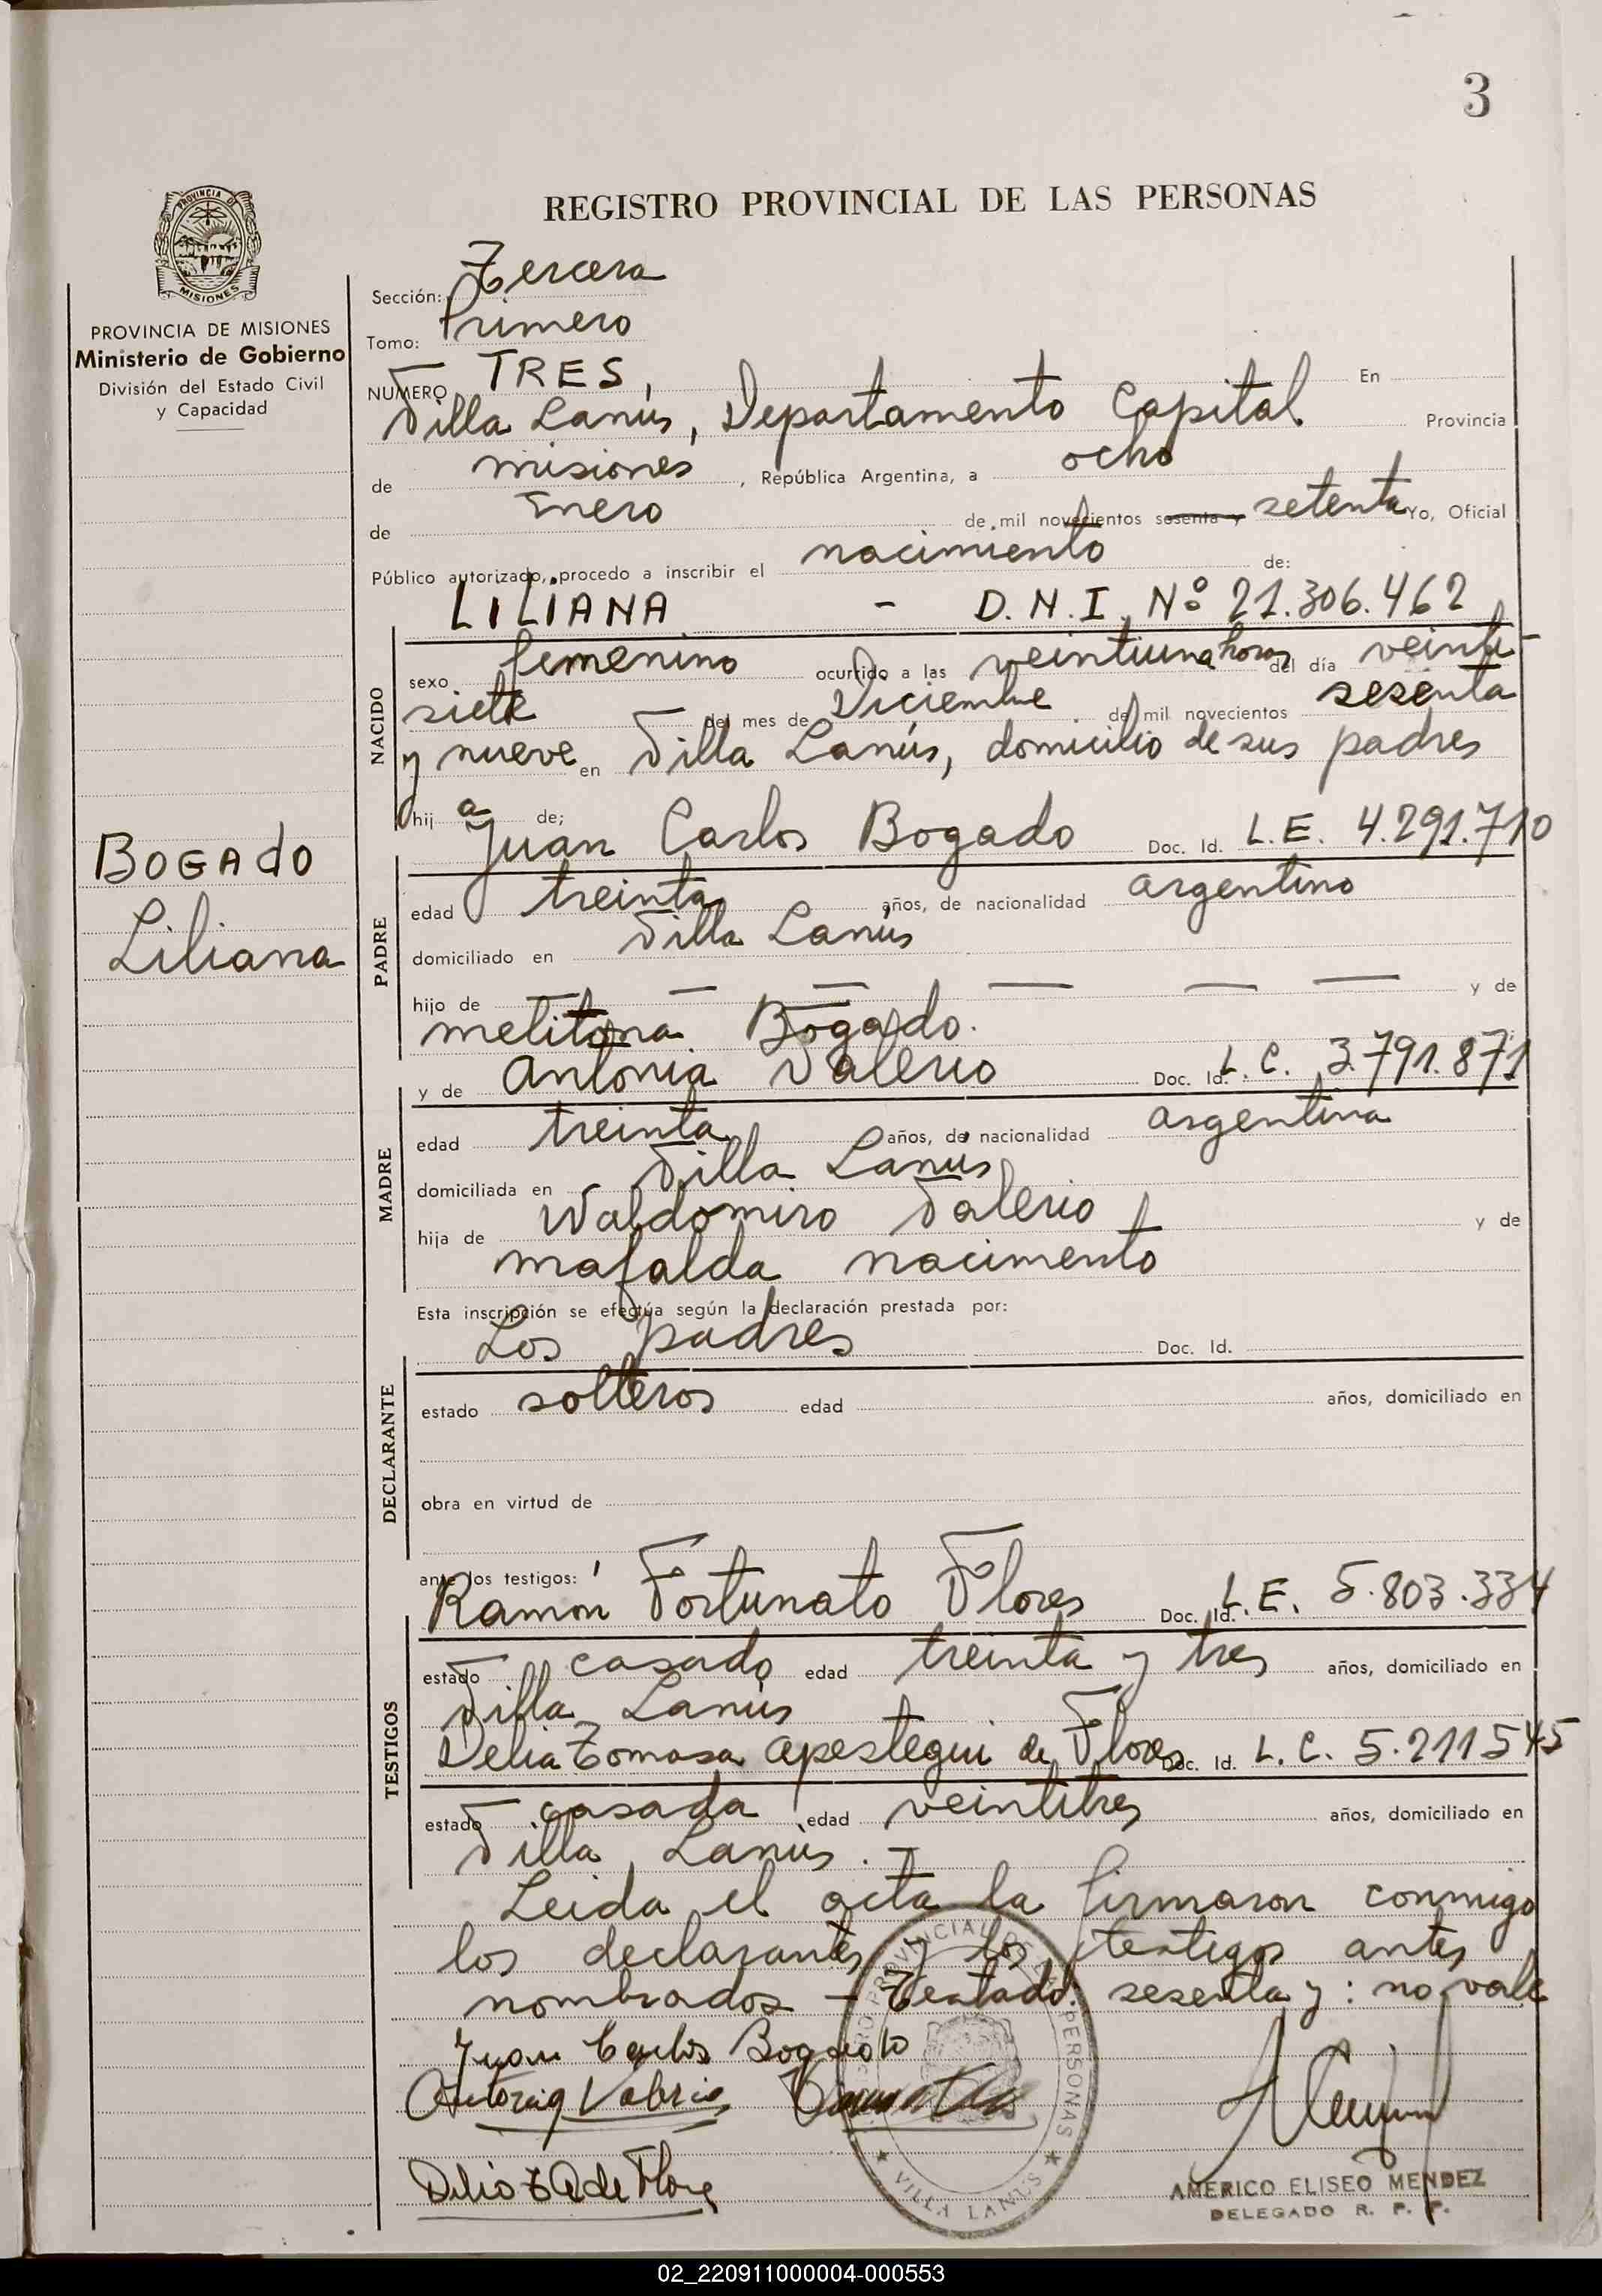 3
REGISTRO PROVINCIAL DE LAS PERSONAS
PROVINCIA DE
MISIONES
PROVINCIA DE MISIONES
Ministerio de Gobierno
División del Estado Civil
y Capacidad
BOGADO
Liliana
Sección: Tercera
Tomo: Primero
NUMERO TRES, En
Villa Lanús, Departamento Capital Provincia
de misiones, República Argentina, a ocho
de Enero de mil novecientos sesenta y setenta Yo, Oficial
Público autorizado, procedo a inscribir el nacimiento de:
LILIANA - D.N.I. Nº 21.306.462
NACIDO
sexo femenino ocurrido a las veintiuna horas del día veinti-
siete del mes de Diciembre de mil novecientos sesenta
y nueve en Villa Lanús, domicilio de sus padres
hij a de;
Juan Carlos Bogado Doc. Id. L.E. 4.291.710
PADRE
edad treinta años, de nacionalidad argentino
domiciliado en Villa Lanús
hijo de — — — — — — y de
melitona Bogado.
y de Antonia Valerio Doc. Id. L.C. 3.791.871
MADRE
edad treinta años, de nacionalidad argentina
domiciliada en Villa Lanus
hija de Waldomiro Valerio y de
mafalda nacimento
Esta inscripción se efectúa según la declaración prestada por:
Los padres Doc. Id.
DECLARANTE
estado solteros edad años, domiciliado en
obra en virtud de
ante los testigos:
Ramón Fortunato Flores Doc. Id. L.E. 5.803.334
TESTIGOS
estado casado edad treinta y tres años, domiciliado en
Villa Lanús
Delia Tomasa Apestegui de Flores Doc. Id. L.C. 5.211545
estado casada edad veintitres años, domiciliado en
Villa Lanús.-
Leida el acta la firmaron conmigo
los declarantes y los testigos antes
nombrados - Testado: sesenta y: no vale
Juan Carlos Bogado
Antonia Valerio
Delia T A de Flores
REGISTRO PROVINCIAL DE LAS PERSONAS
VILLA LANUS
AMERICO ELISEO MENDEZ
DELEGADO R. P. P.
02_220911000004-000553